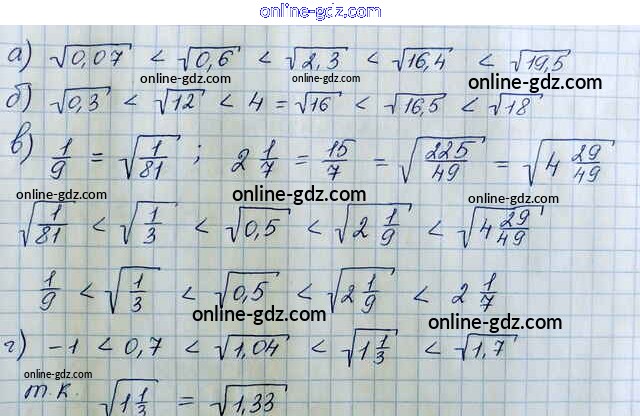 online-gdz.com
а) √0,07 < √0,6 < √2,3 < √16,4 < √19,5
online-gdz.com online-gdz.com online-gdz.com
б) √0,3 < √12 < 4 = √16 < √16,5 < √18
online-gdz.com
в) 1/9 = √(1/81) ; 2 1/7 = 15/7 = √(225/49) = √(4 29/49)
online-gdz.com online-gdz.com online-gdz.com
√(1/81) < √(1/3) < √0,5 < √(2 1/9) < √(4 29/49)
1/9 < √(1/3) < √0,5 < √(2 1/9) < 2 1/7
online-gdz.com online-gdz.com
г) -1 < 0,7 < √1,04 < √(1 1/3) < √1,7
online-gdz.com online-gdz.com
т.к. √(1 1/3) = √1,33